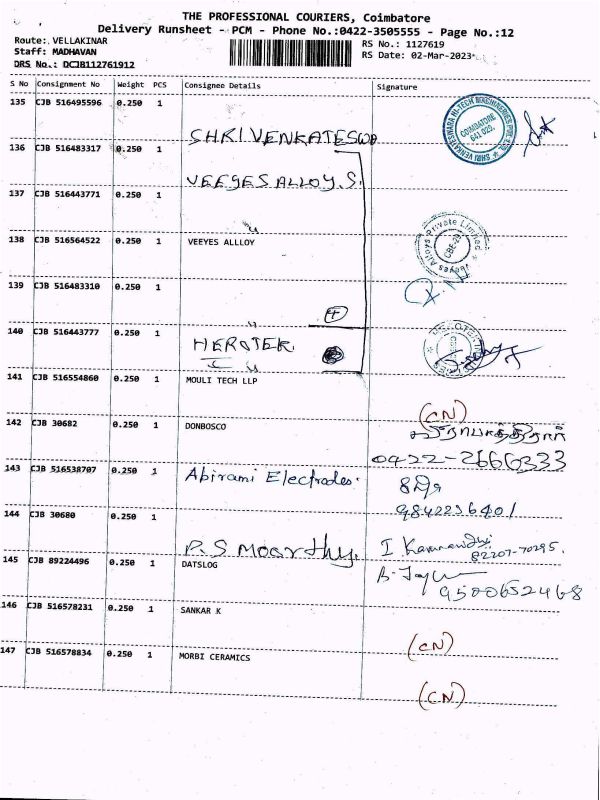 THE PROFESSIONAL COURIERS, Coimbatore
Delivery Runsheet - PCM - Phone No.:0422-3505555 - Page No.:12
Route: VELLAKINAR
RS No.: 1127619
Staff: MADHAVAN
RS Date: 02-Mar-2023
DRS No.: DCJB112761912
S No Consignment No Weight PCS Consignee Details Signature
135 CJB 516495596 0.250 1
SHRI VENKATESWA
136 CJB 516483317 0.250 1
VEEYES ALLOY.S.
137 CJB 516443771 0.250 1
138 CJB 516564522 0.250 1 VEEYES ALLLOY
139 CJB 516483310 0.250 1
140 CJB 516443777 0.250 1 HEROTEK
141 CJB 516554860 0.250 1 MOULI TECH LLP
(CN)
142 CJB 30682 0.250 1 DONBOSCO
0422-2666333
143 CJB 516538707 0.250 1 Abirami Electrodes.
9842236401
144 CJB 30680 0.250 1
P.S Moorthy.
82207-70295.
145 CJB 89224496 0.250 1 DATSLOG
9500652468
146 CJB 516578231 0.250 1 SANKAR K
(CN)
147 CJB 516578834 0.250 1 MORBI CERAMICS
(CN)